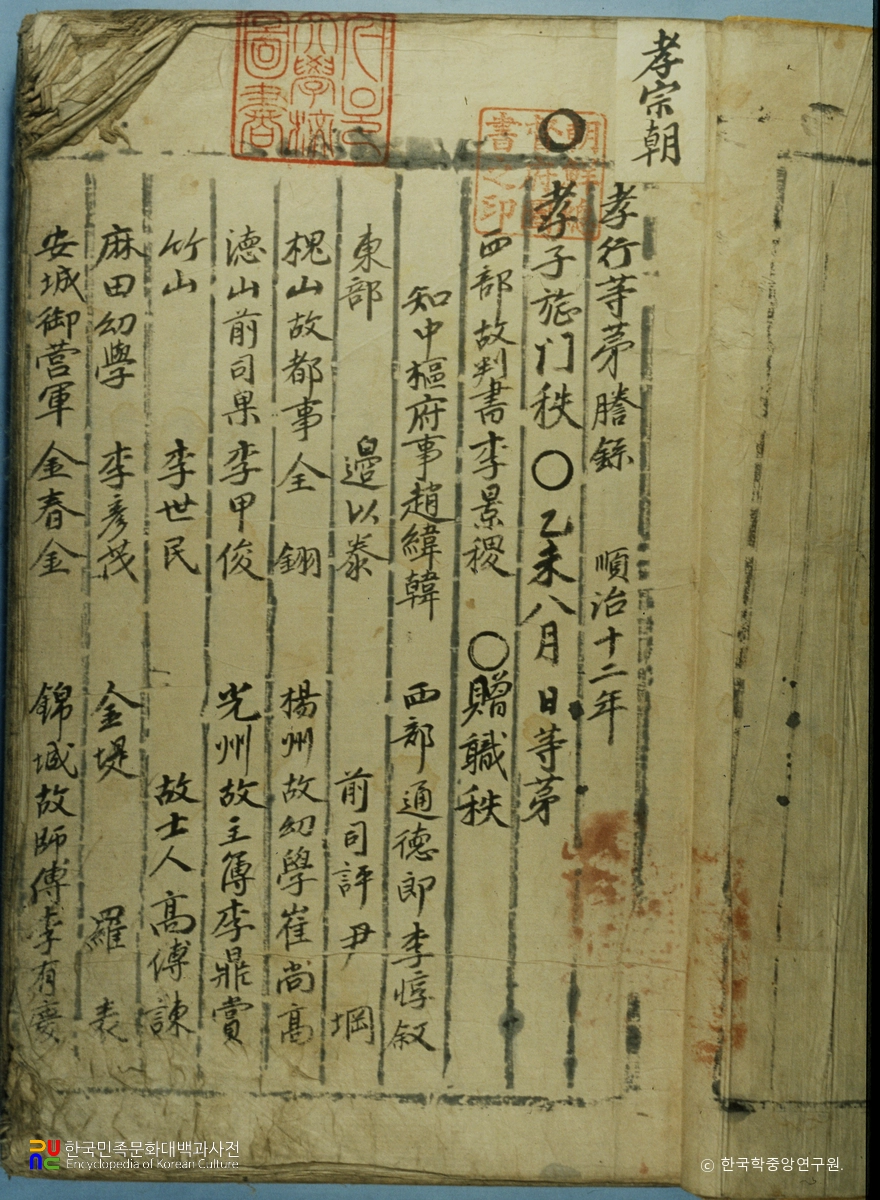 孝宗朝
孝行等第謄錄 順治十二年
○孝子旌门秩○乙未八月 日等第
西部故判書李景稷 ○贈職秩
知中樞府事趙緯韓 西部通德郎李惇叙
東部 邉以泰 前司評尹堈
槐山故都事全翎 楊州故幼學崔尚髙
徳山前司果李甲俊 光州故主簿李鼎賞
竹山 李世民 故士人髙傅諫
麻田幼學 李彦茂 金堤 羅表
安城御营軍金春金 錦城故師傅李有慶
圖書
大學校
朝鮮總
督府圖
書之印
한국민족문화대백과사전
Encyclopedia of Korean Culture
© 한국학중앙연구원.